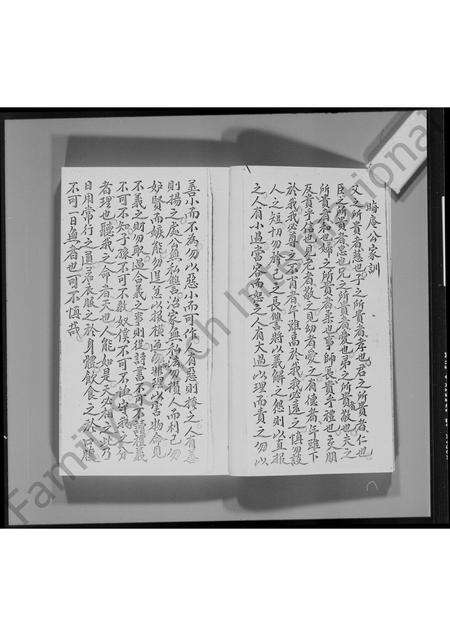 晦庵公家訓
父之所貴者慈也子之所貴者孝也君之所貴者仁也
臣之所貴者忠也兄之所貴者愛也弟之所貴者敬也夫之
所貴者和也婦之所貴者柔也事師長貴乎禮也交朋
友貴乎信也見老者敬之見幼者愛之有德者年雖下
於我我必尊之不肖者年雖高於我我必遠之慎勿談
人之短切勿矜己之長讐者以義解之怨者則以直報
之人有小過當容而忍之人有大過以理而責之勿以
善小而不為勿以惡小而可作人有惡則掩之人有善
則揚之處公無私讐治家無私法勿損人而利己勿
妒賢而嫉能勿逞忿以報橫逆勿非理以害物命見
不義之財勿取遇合義之事則從詩書不可不讀禮義
不可不知子孫不可不教奴僕不可不恤守我之分
者理也聽我之命者天也人能如是天必相之此乃
日用常行之道若衣服之於身體飲食之於口腹
不可一日無者也可不慎哉
Family Search International